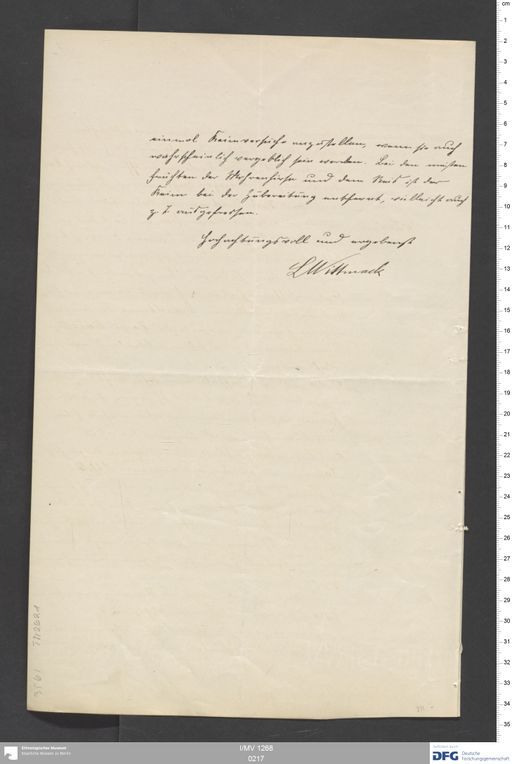 einmal Keimversuche anzustellen, wenn sie auch
wahrscheinlich vergeblich sein werden. Bei den meisten
Früchten der Mohrenhirse und dem Reis ist der
Keim bei der Zubereitung entfernt, vielleicht auch
z. T. ausgefressen.
Hochachtungsvoll und ergebenst
L Wittmack
Ethnologisches Museum
Staatliche Museen zu Berlin
I/MV 1268
0217
DFG Deutsche
Forschungsgemeinschaft
cm
1
2
3
4
5
6
7
8
9
10
11
12
13
14
15
16
17
18
19
20
21
22
23
24
25
26
27
28
29
30
31
32
33
34
35